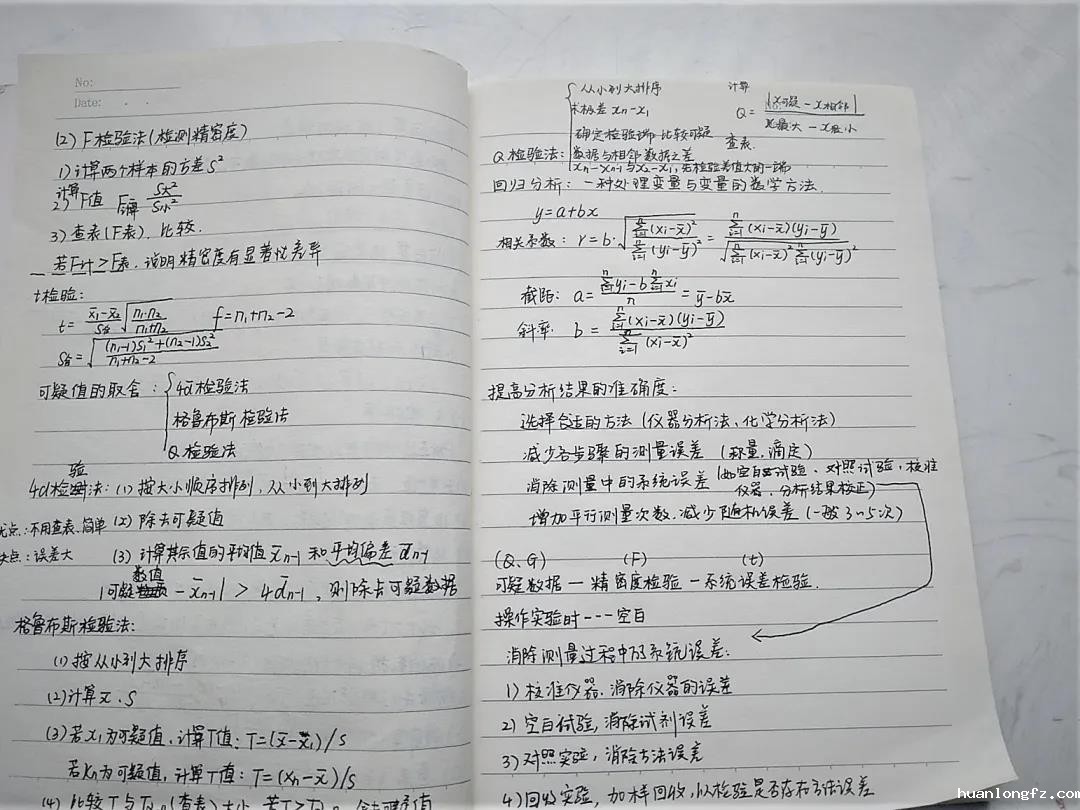 No:
Date:
(2) F检验法(检测精密度)
1)计算两个样本的方差S²
2)计算F值 F计算 S大²/S小²
3)查表(F表).比较.
若F计>F表.说明精密度有显著性差异
t检验:
t=(x̄₁-x̄₂)/S合 √(n₁·n₂/(n₁+n₂)) f=n₁+n₂-2
S合=√(((n₁-1)S₁²+(n₂-1)S₂²)/(n₁+n₂-2))
可疑值的取舍: 4d̄检验法
格鲁布斯检验法
Q检验法
4d检验法:(1)按大小顺序排列,从小到大排列
优点:不用查表、简单 (2)除去可疑值
缺点:误差大 (3)计算其余值的平均值x̄n-1和平均偏差d̄n-1
|可疑数值-x̄n-1| > 4d̄n-1,则除去可疑数据
格鲁布斯检验法:
(1)按从小到大排序
(2)计算x̄.S
(3)若x₁为可疑值,计算T值:T=(x̄-x₁)/S
若xn为可疑值,计算T值:T=(xn-x̄)/S
(4)比较T与
从小到大排序 计算
求极差xn-x₁ Q=|x可疑-x相邻|/(x最大-x最小)
确定检验端 比较可疑 查表.
Q检验法: 数据与相邻数据之差
xn-xn-1与x₂-x₁,先检验差值大的一端
回归分析:一种处理变量与变量的数学方法.
y=a+bx
相关系数:r=b·√(∑ⁿᵢ₌₁(xi-x̄)²/∑ⁿᵢ₌₁(yi-ȳ)²)=∑ⁿᵢ₌₁(xi-x̄)(yi-ȳ)/√(∑ⁿᵢ₌₁(xi-x̄)²∑ⁿᵢ₌₁(yi-ȳ)²)
截距:a=(∑ⁿᵢ₌₁yi-b∑ⁿᵢ₌₁xi)/n=ȳ-bx̄
斜率:b=∑ⁿᵢ₌₁(xi-x̄)(yi-ȳ)/∑ⁿᵢ₌₁(xi-x̄)²
提高分析结果的准确度:
选择合适的方法(仪器分析法,化学分析法)
减少各步骤的测量误差(称量,滴定)
消除测量中的系统误差(如空白试验、对照试验,校准
仪器,分析结果校正)
增加平行测量次数.减少随机误差(一般3~5次)
(Q.G) (F) (t)
可疑数据—精密度检验—系统误差检验.
操作实验时---空白
消除测量过程中的系统误差:
1)校准仪器.消除仪器的误差
2)空白试验,消除试剂误差
3)对照实验,消除方法误差
4)回收实验,加样回收,以检验是否存在方法误差
huanlongfz.com